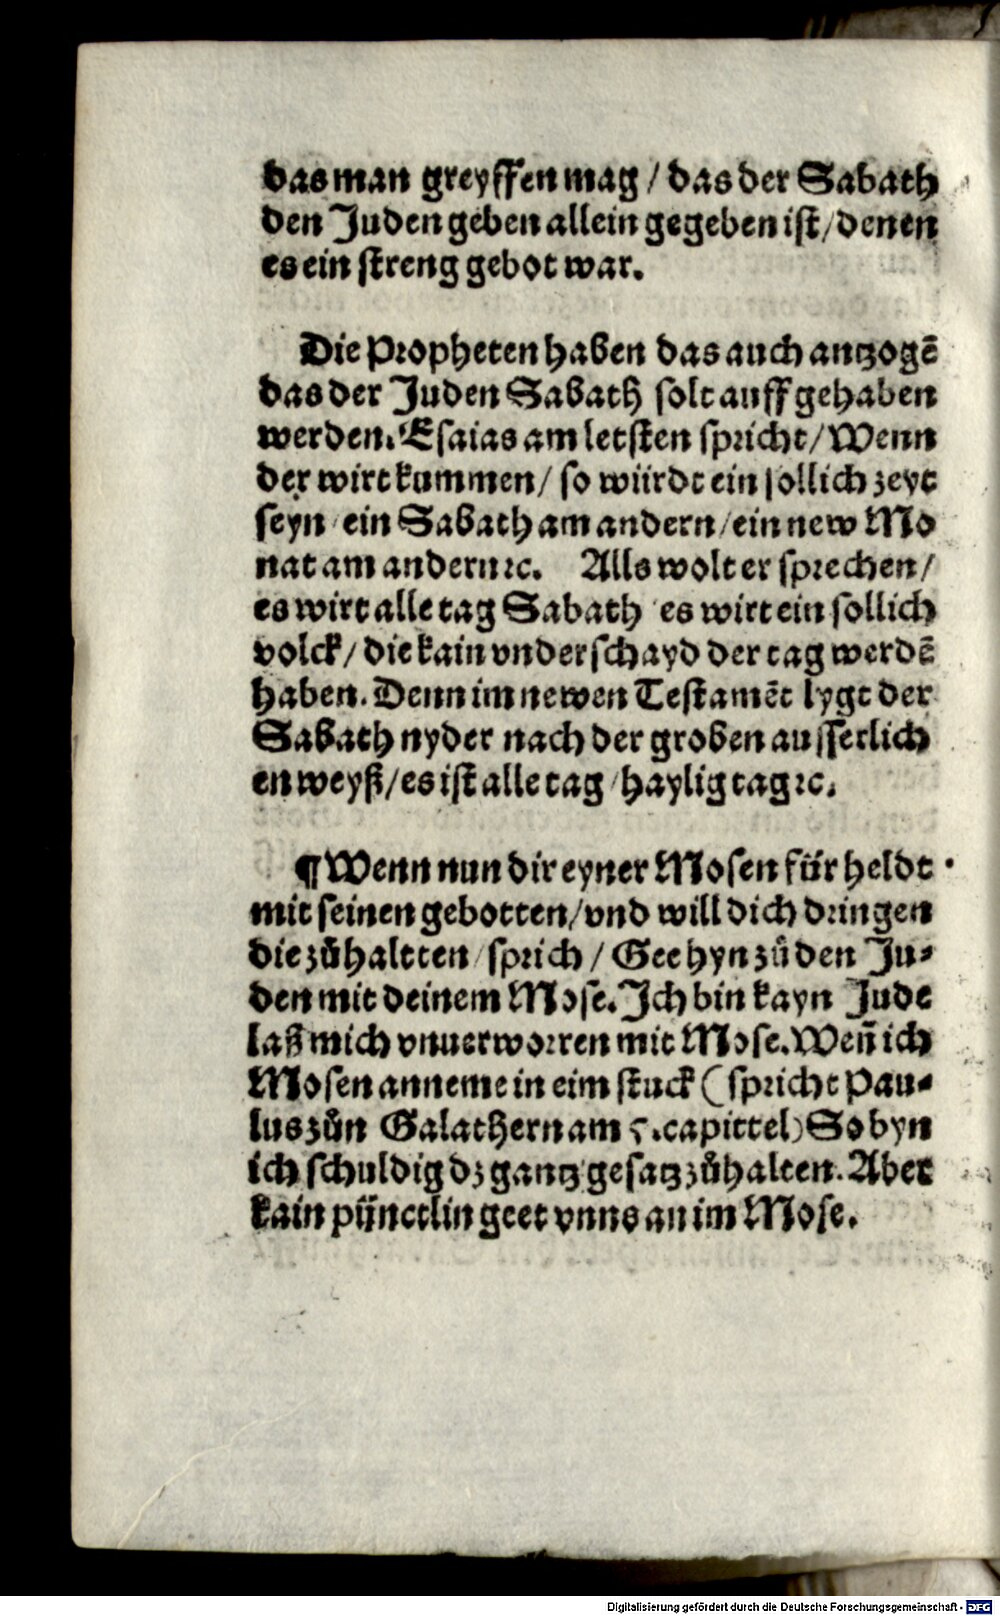 das man greyffen mag / das der Sabath
den Juden geben allein gegeben ist / denen
es ein streng gebot war.
Die Propheten haben das auch antzogē
das der Juden Sabath solt auff gehaben
werden. Esaias am letsten spricht / Wenn
der wirt kummen / so würdt ein sollich zeyt
seyn / ein Sabath am andern / ein new Mo
nat am andern ꝛc. Alls wolt er sprechen /
es wirt alle tag Sabath / es wirt ein sollich
volck / die kain vnderschayd der tag werdē
haben. Denn im newen Testamēt lygt der
Sabath nyder nach der groben ausserlich
en weyß / es ist alle tag / haylig tag ꝛc.
¶ Wenn nun dir eyner Mosen für heldt
mit seinen gebotten / vnd will dich dringen
die zůhaltten / sprich / Gee hyn zů den Ju⸗
den mit deinem Mose. Ich bin kayn Jude
laß mich vnuerworren mit Mose. Weñ ich
Mosen anneme in eim stuck (spricht Pau⸗
lus zůn Galathern am 5. capittel) So byn
ich schuldig dz gantz gesatz zůhalten. Aber
kain pünctlin geet vnns an im Mose.
Digitalisierung gefördert durch die Deutsche Forschungsgemeinschaft - DFG